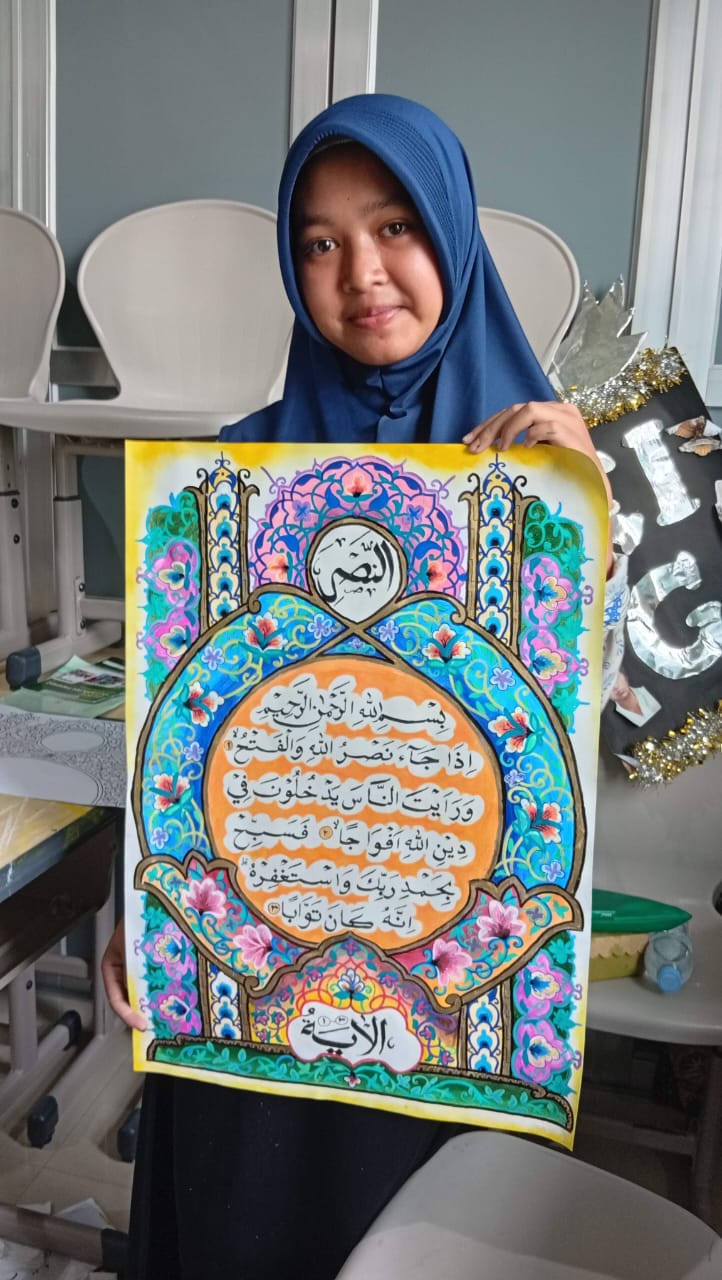 النَّصْر
بِسْمِ اللهِ الرَّحْمٰنِ الرَّحِيْمِ
اِذَا جَآءَ نَصْرُ اللهِ وَالْفَتْحُۙ ١
وَرَاَيْتَ النَّاسَ يَدْخُلُوْنَ فِيْ
دِيْنِ اللهِ اَفْوَاجًاۙ ٢ فَسَبِّحْ
بِحَمْدِ رَبِّكَ وَاسْتَغْفِرْهُۗ
اِنَّهٗ كَانَ تَوَّابًا ٣
١-٣
الْأٰيَةُ
I
G